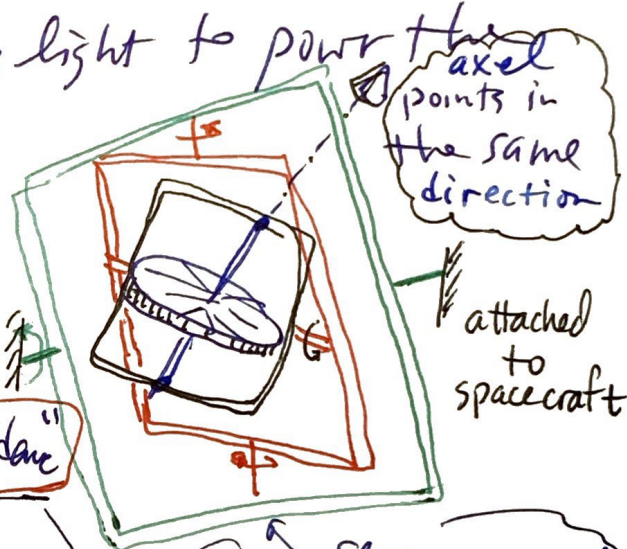 light to powr the
axel
points in
the same
direction
attached
to
spacecraft
G